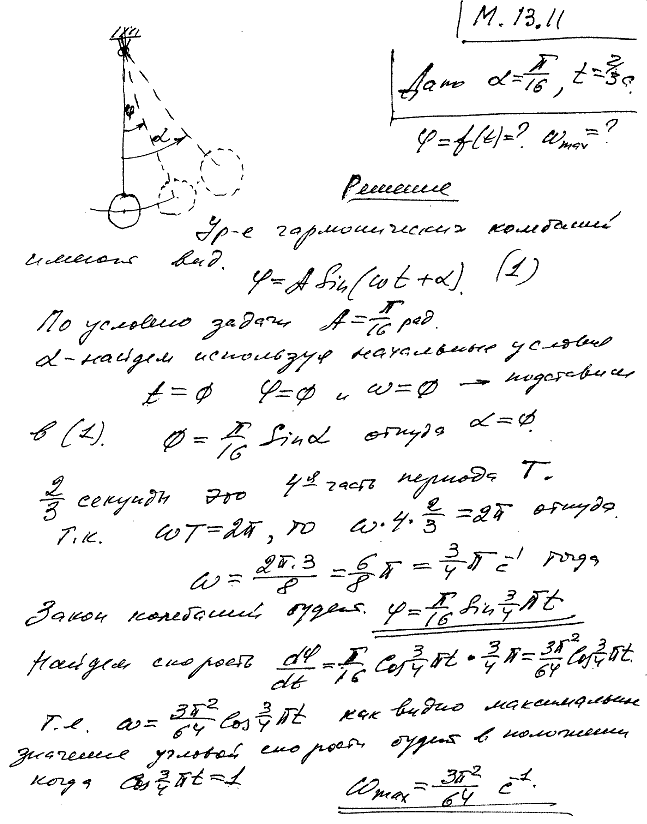 М. 13.11
Дано α=π/16, t=2/3 с.
φ=f(t)=? ω_max=?
φ
α
Решение
Ур-е гармонических колебаний
имеют вид.
φ=A Sin(ωt+α). (1)
По условию задачи A=π/16 рад.
α-найдем используя начальные условия
t=0 φ=0 и ω=0 → подставим
в (1). 0=π/16 Sinα откуда α=0.
2/3 секунды это 4ая часть периода T.
т.к. ωT=2π, то ω·4·2/3=2π откуда.
ω=2π·3/8=6/8π=3/4π с⁻¹ тогда
Закон колебаний будет. φ=π/16 Sin3/4πt
Найдем скорость dφ/dt=π/16 Cos3/4πt·3/4π=3π²/64 Cos3/4πt.
т.е. ω=3π²/64 Cos3/4πt как видно максимальн
значение угловой скорости будет в положении
когда Cos3/4πt=1
ω_max=3π²/64 с⁻¹.